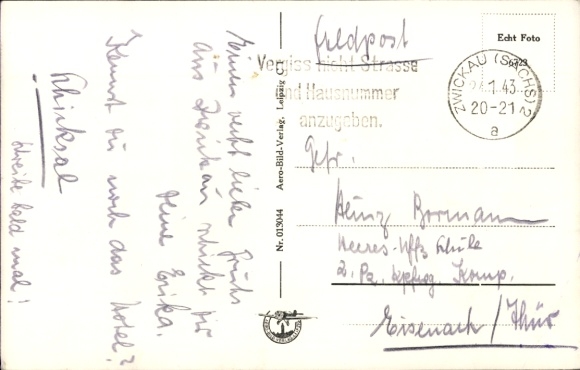 Einen recht lieben Gruß
aus Zwickau schickt dir
Deine Erika.
Kennst du noch das Hotel?
Schicksal
Schreibe bald mal!
Aero-Bild-Verlag, Leipzig C
Nr. 013044
Feldpost
Echt Foto
Vergiss nicht Strasse
und Hausnummer
anzugeben.
ZWICKAU (SACHS) 2
1.43
20-21
a
Gefr.
Heinz Bormann
Heeres-Uffz Schule
2. Pz. Kpfwg. Komp.
Eisenach/Thür